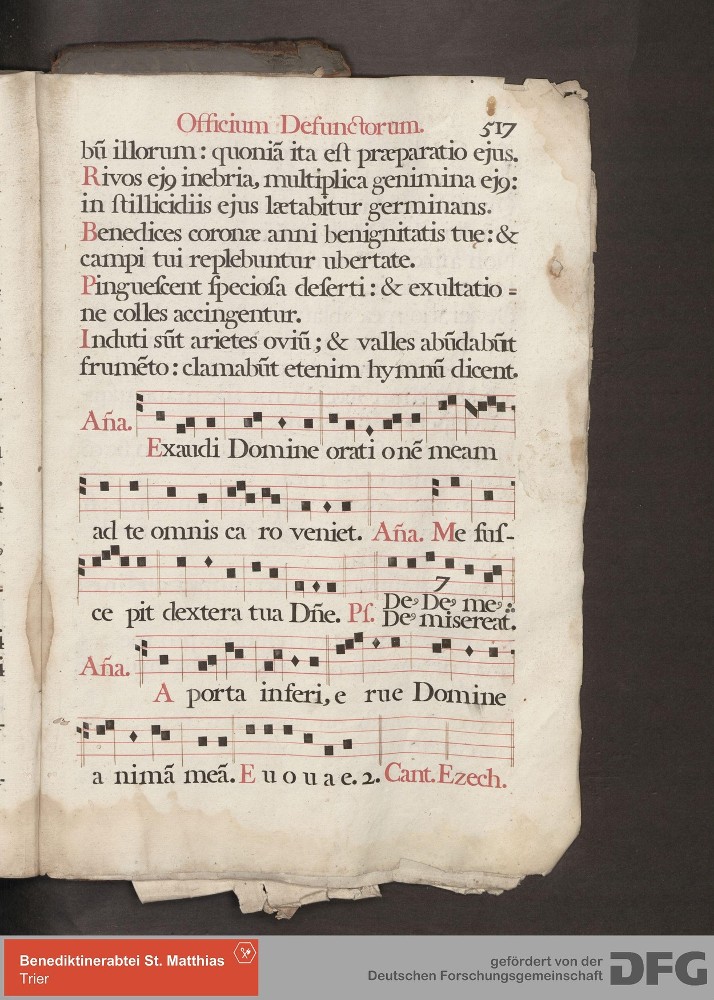 Officium Defunctorum. 517
bũ illorum: quoniã ita eſt præparatio ejus.
Rivos ejꝰ inebria, multiplica genimina ejꝰ:
in ſtillicidiis ejus lætabitur germinans.
Benedices coronæ anni benignitatis tuę: &
campi tui replebuntur ubertate.
Pingueſcent ſpecioſa deſerti: & exultatio=
ne colles accingentur.
Induti sũt arietes oviũ; & valles abũdabũt
frumẽto: clamabũt etenim hymnũ dicent.
Aña. Exaudi Domine orati onẽ meam
ad te omnis ca ro veniet. Aña. Me ſuſ-
7
ce pit dextera tua Dñe. Pſ. Deꝰ Deꝰ me9:
Deꝰ misereat.
Aña. A porta inferi, e rue Domine
a nimã meã. E u o u a e. 2. Cant. Ezech.
Benediktinerabtei St. Matthias
Trier
gefördert von der
Deutschen Forschungsgemeinschaft DFG